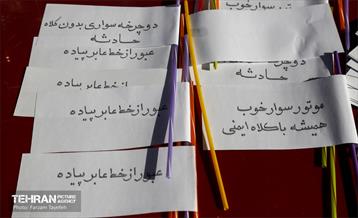 دوچرخه سواری بدون کلاه
حادثه
عبور از خط عابر پیاده
عبور از خط عابر پیاده
عبور از خط عابر پیاده
سوار خوب
حادثه
موتور سوار خوب
همیشه با کلاه ایمنی
TEHRAN PICTURE AGENCY
Photo: Farzam Tayefeh